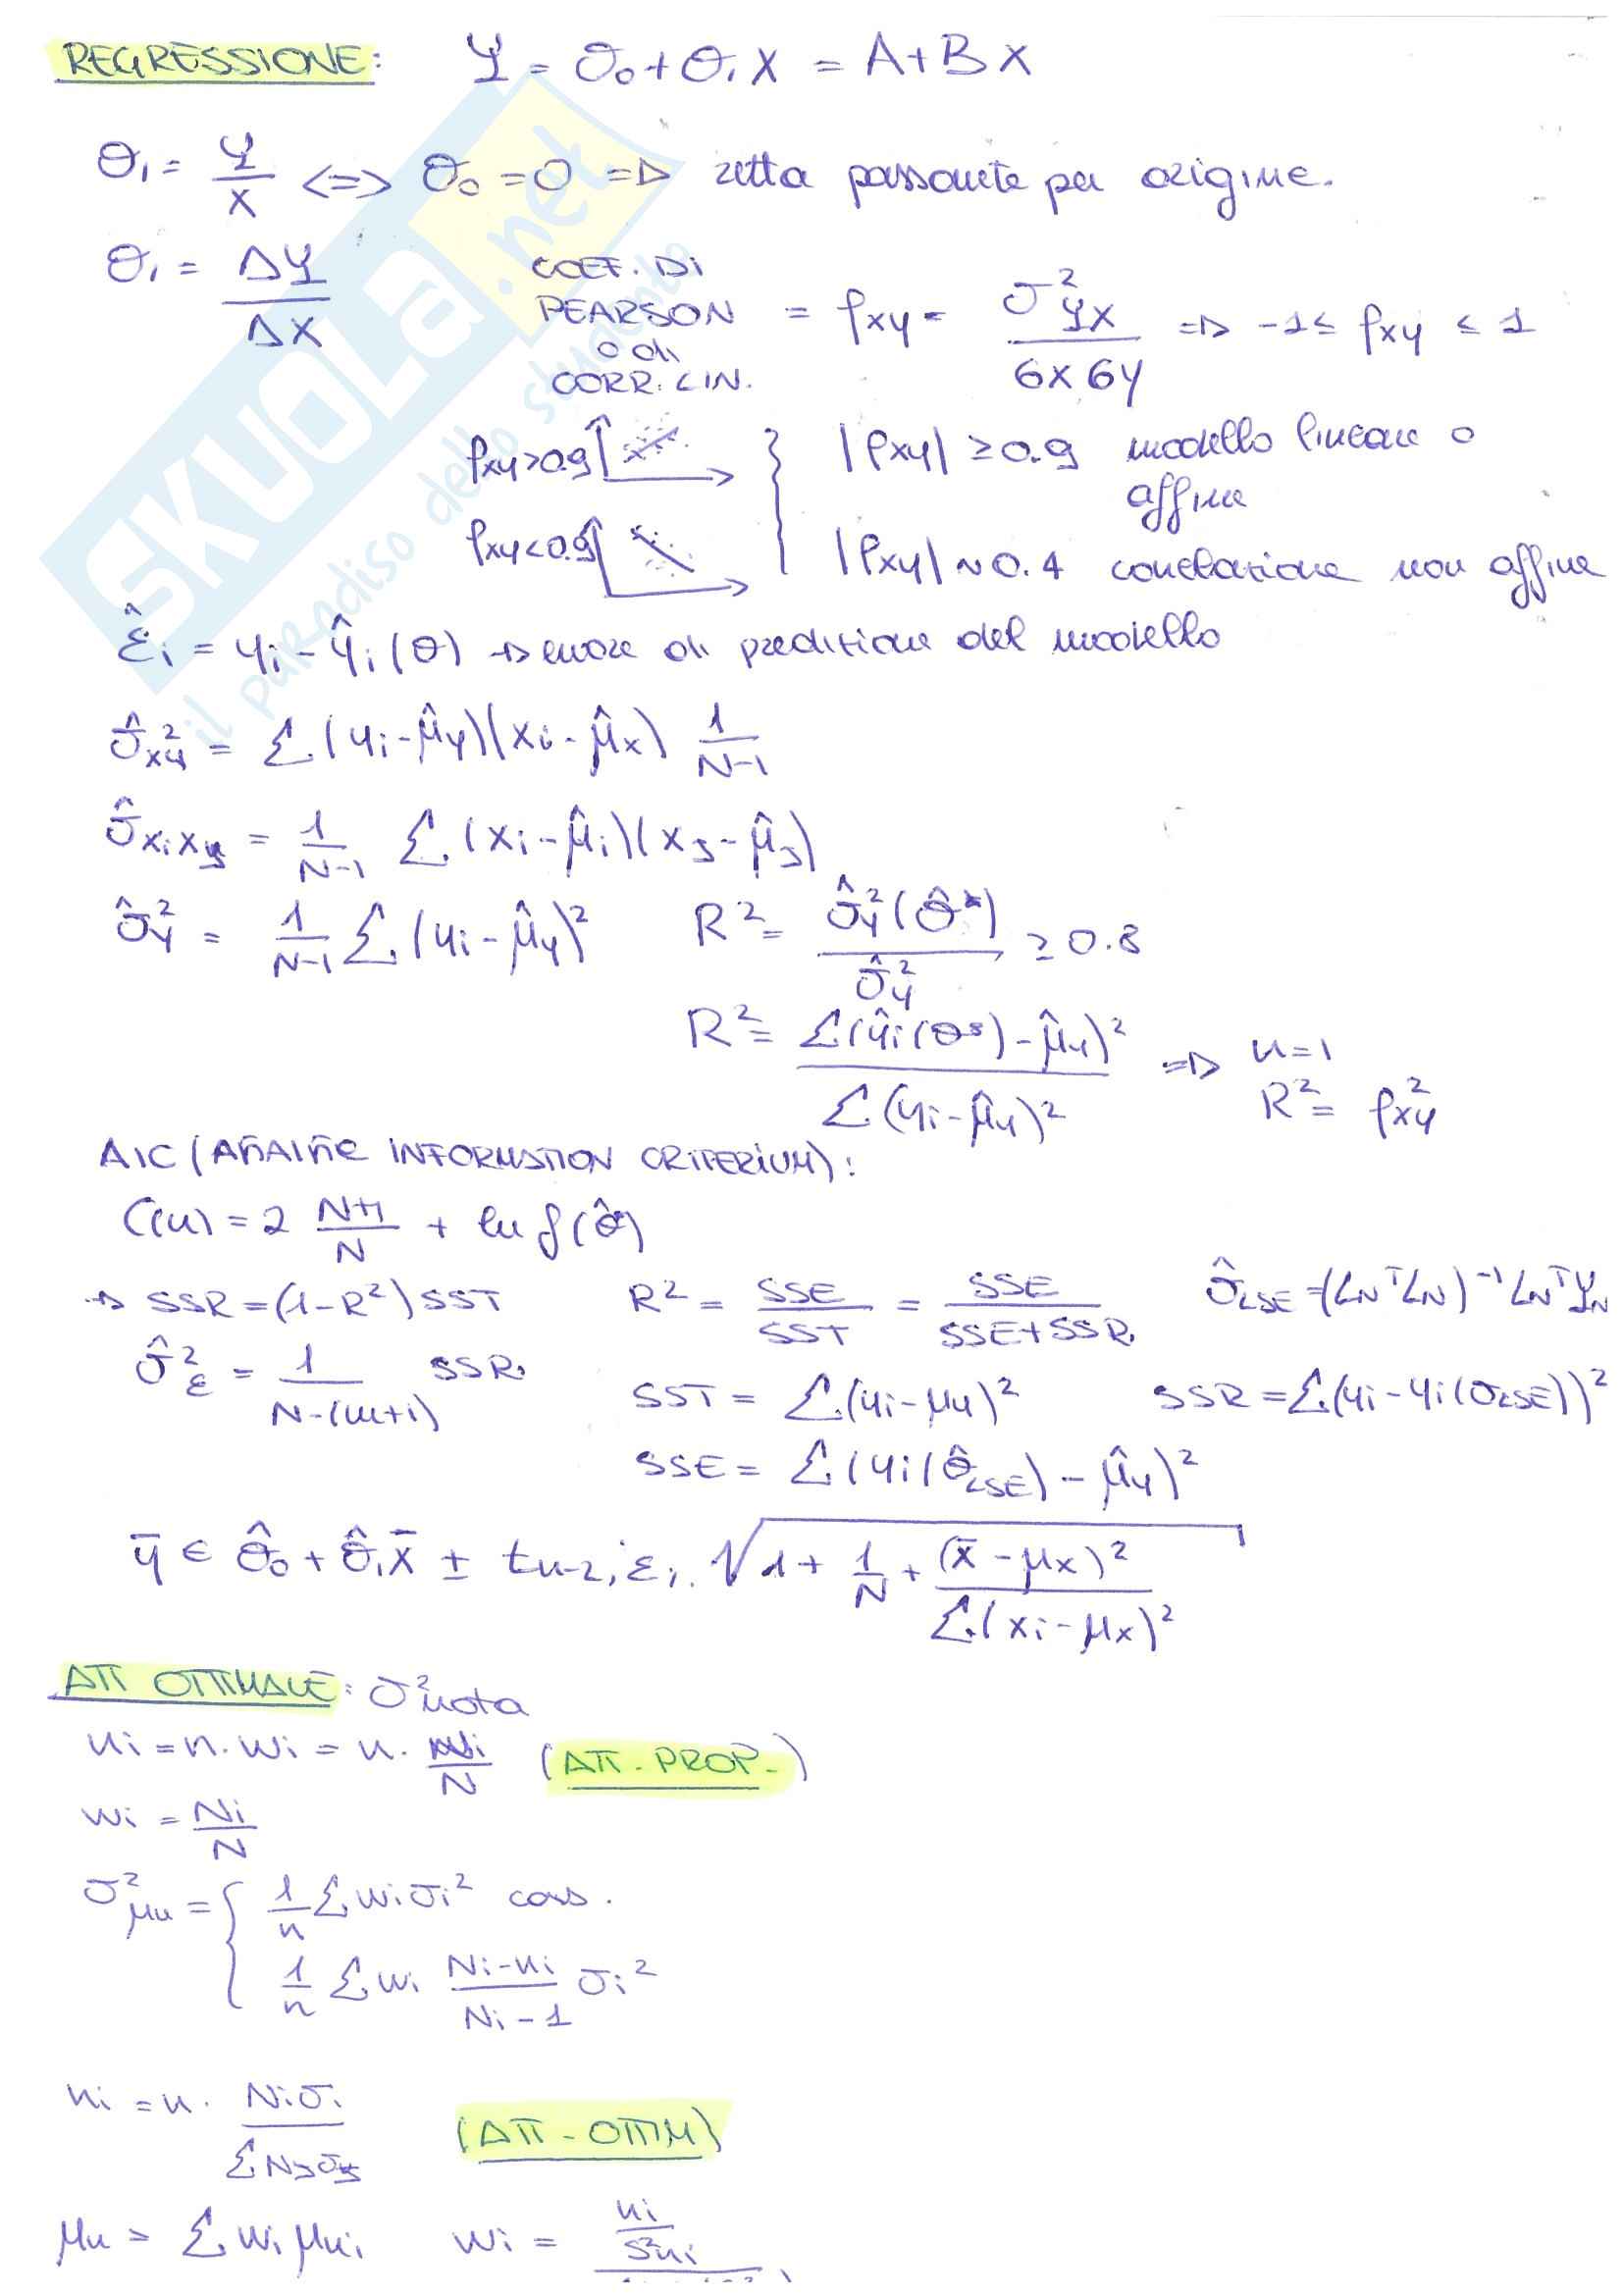 REGRESSIONE: Y = θ₀ + θ₁ X = A + B X
θ₁ = Y/X <=> θ₀ = 0 => retta passante per origine.
θ₁ = ΔY/ΔX
COEF. Di PEARSON o di CORR. LIN. = ρxy = σ²yx / σx σy => -1 ≤ ρxy ≤ 1
ρxy > 0.9
|ρxy| ≥ 0.9 modello lineare o affine
ρxy < 0.9
|ρxy| ~ 0.4 correlazione non affine
ε̂i = yi - ŷi(θ) → errore di predizione del modello
σ̂²xy = Σ(yi - μ̂y)(xi - μ̂x) 1/(N-1)
σ̂xixj = 1/(N-1) Σ(xi - μ̂i)(xj - μ̂j)
σ̂²y = 1/(N-1) Σ(yi - μ̂y)² R² = σ̂²y(θ̂*) / σ̂²y ≥ 0.8
R² = Σ(ŷi(θ*) - μ̂y)² / Σ(yi - μ̂y)² => n=1 R² = ρ²xy
AIC (AKAIKE INFORMATION CRITERIUM):
C(n) = 2 (N+1)/N + ln f(θ̂)
→ SSR = (1-R²) SST R² = SSE/SST = SSE/(SSE+SSR) θ̂LSE = (LNᵀLN)⁻¹ LNᵀ YN
σ̂²ε = 1/(N-(m+1)) SSR SST = Σ(yi - μy)² SSR = Σ(yi - yi(θLSE))²
SSE = Σ(yi(θ̂LSE) - μ̂y)²
ȳ ∈ θ̂₀ + θ̂₁x̄ ± tn-2; εi. √(1 + 1/N + (x̄ - μx)²/Σ(xi - μx)²)
ATT OTTIMALE: σ² nota
ni = n · wi = n · Ni/N (ATT. PROP.)
wi = Ni/N
σ²μn = { 1/n Σ wi σi² cors.
1/n Σ wi (Ni - ni)/(Ni - 1) σi²
ni = n · Niσi / ΣNjσj (ATT - OTTIM)
μn = Σ wi μni wi = ni/S²ni
SKUOLA.net
il paradiso dello studente